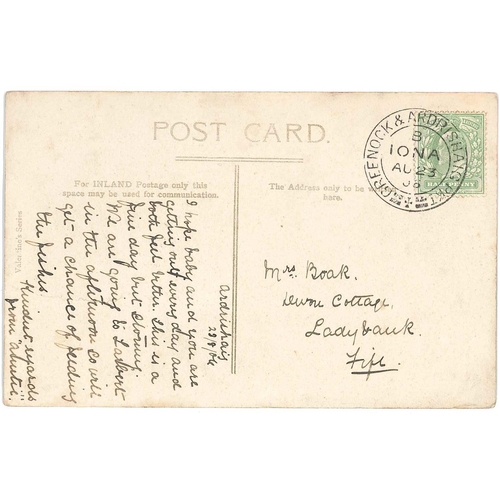 POST CARD.
For INLAND Postage only this
space may be used for communication.
The Address only to be
here.
Valentine's Series
GREENOCK & ARDRISHAIG
B
IONA
AU 23
HALFPENNY
Ardrishaig
I hope baby and you are
getting out every day and
both feel better. This is a
fine day but
We are going to
in the afternoon so will
get a chance of feeding
the fishes
Kindest regards
from "Auntie".
Mrs. Boak.
Devon Cottage,
Ladybank.
Fife.